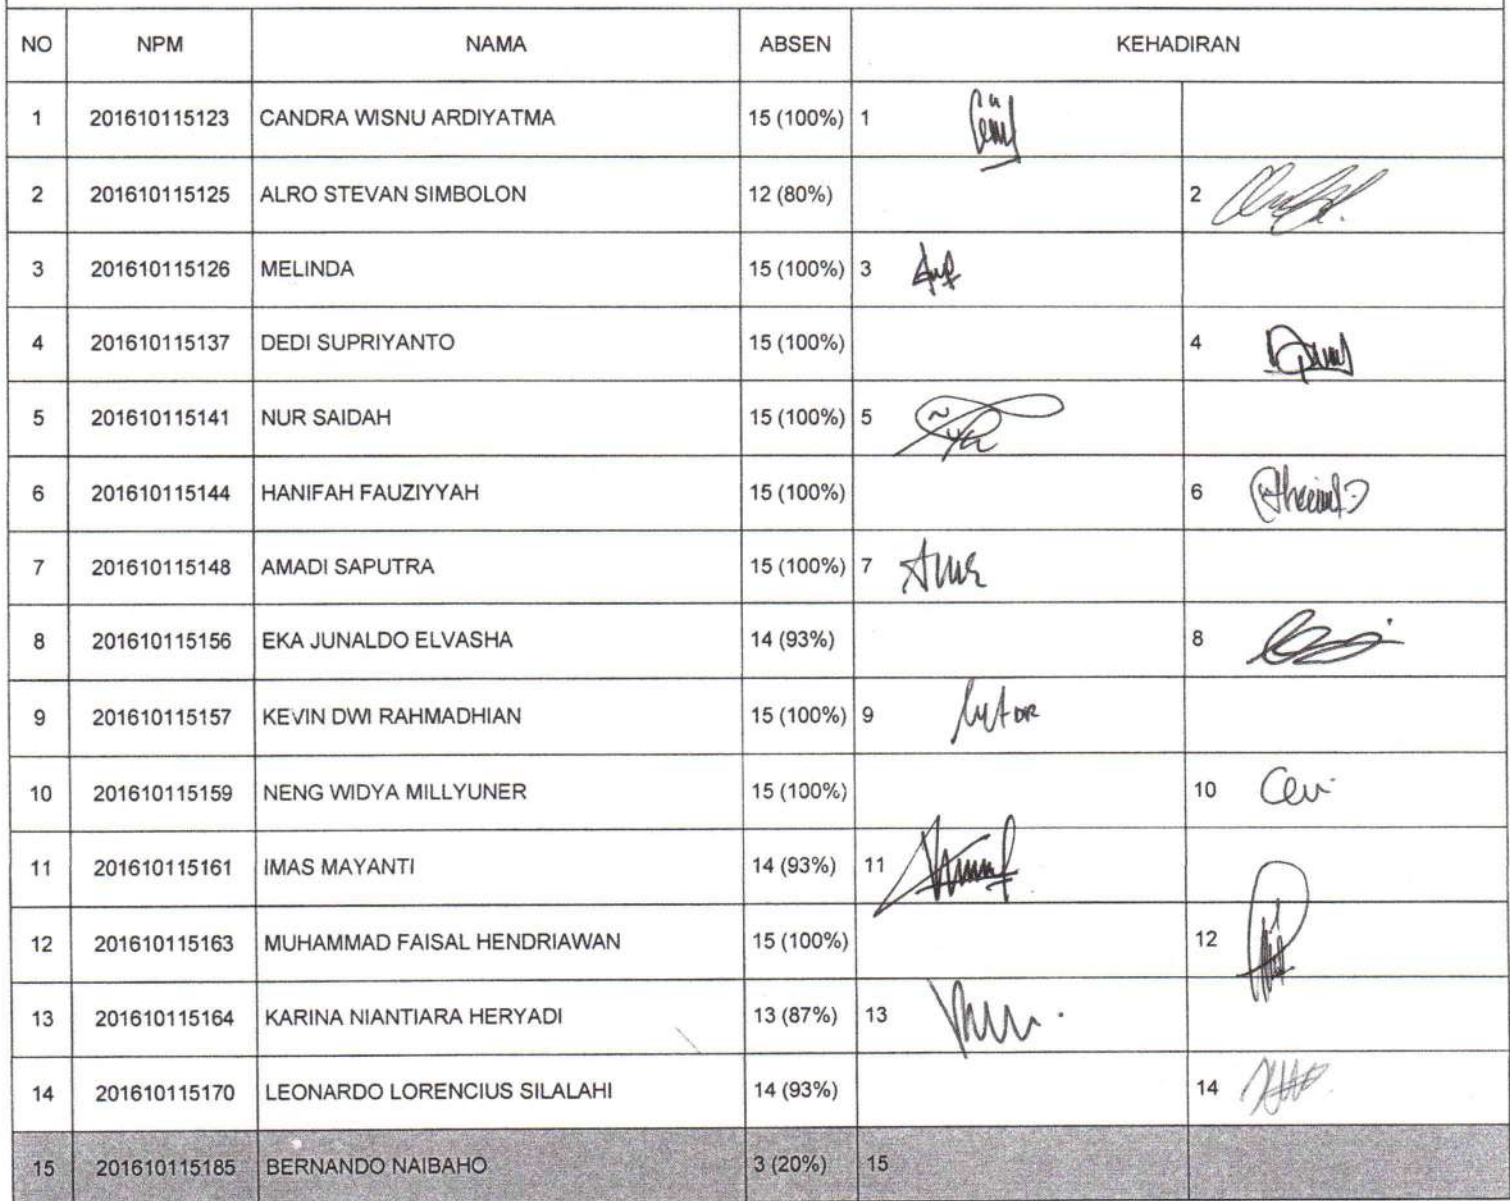 NO NPM NAMA ABSEN KEHADIRAN
1 201610115123 CANDRA WISNU ARDIYATMA 15 (100%) 1
2 201610115125 ALRO STEVAN SIMBOLON 12 (80%) 2
3 201610115126 MELINDA 15 (100%) 3
4 201610115137 DEDI SUPRIYANTO 15 (100%) 4
5 201610115141 NUR SAIDAH 15 (100%) 5
6 201610115144 HANIFAH FAUZIYYAH 15 (100%) 6
7 201610115148 AMADI SAPUTRA 15 (100%) 7
8 201610115156 EKA JUNALDO ELVASHA 14 (93%) 8
9 201610115157 KEVIN DWI RAHMADHIAN 15 (100%) 9
10 201610115159 NENG WIDYA MILLYUNER 15 (100%) 10
11 201610115161 IMAS MAYANTI 14 (93%) 11
12 201610115163 MUHAMMAD FAISAL HENDRIAWAN 15 (100%) 12
13 201610115164 KARINA NIANTIARA HERYADI 13 (87%) 13
14 201610115170 LEONARDO LORENCIUS SILALAHI 14 (93%) 14
15 201610115185 BERNANDO NAIBAHO 3 (20%) 15